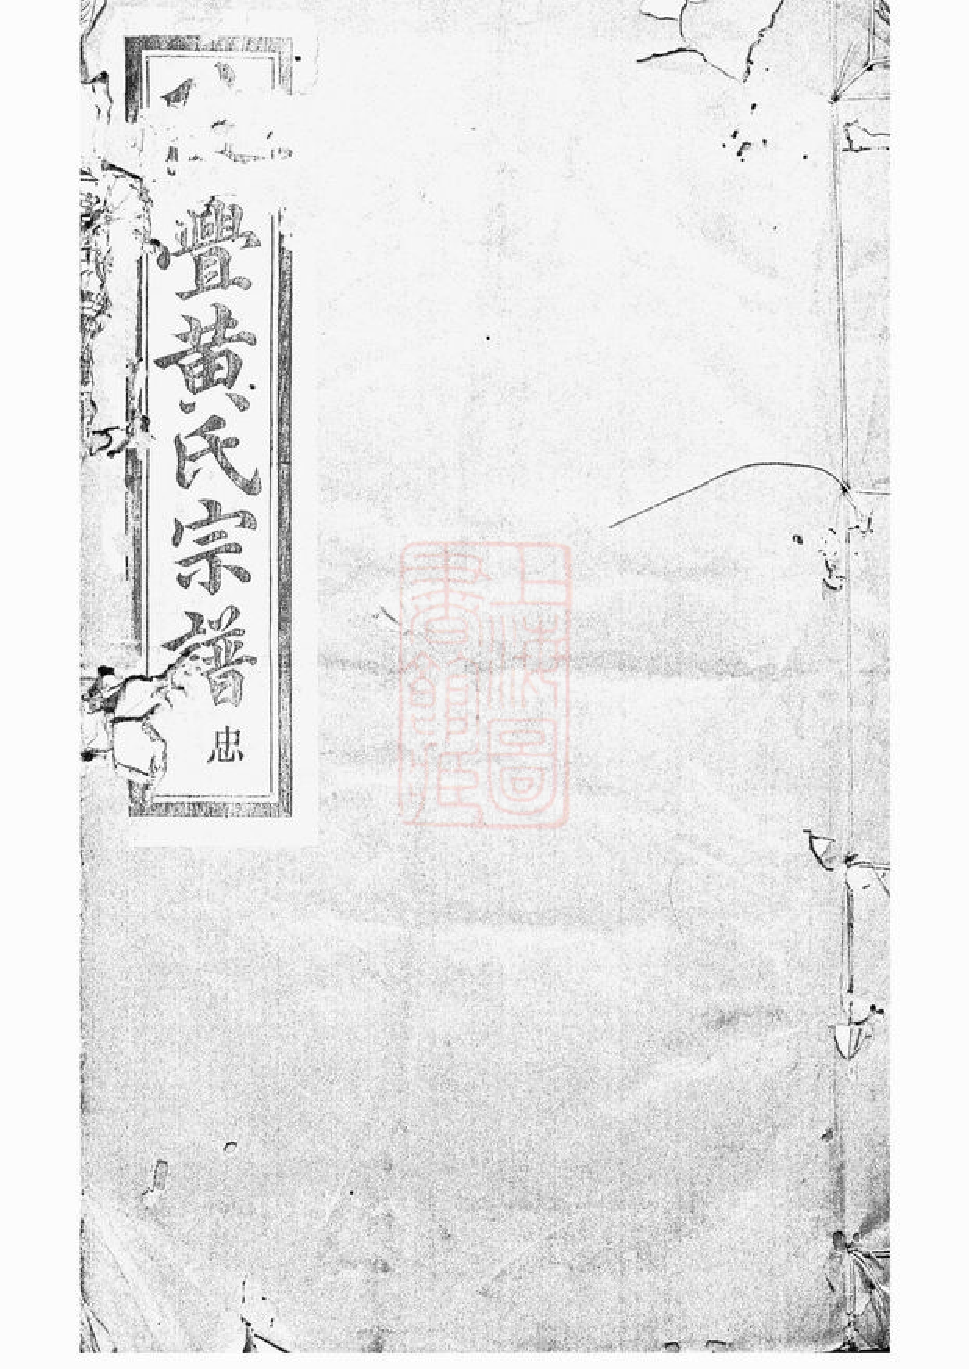 黄氏宗譜
忠
上海圖
書館藏